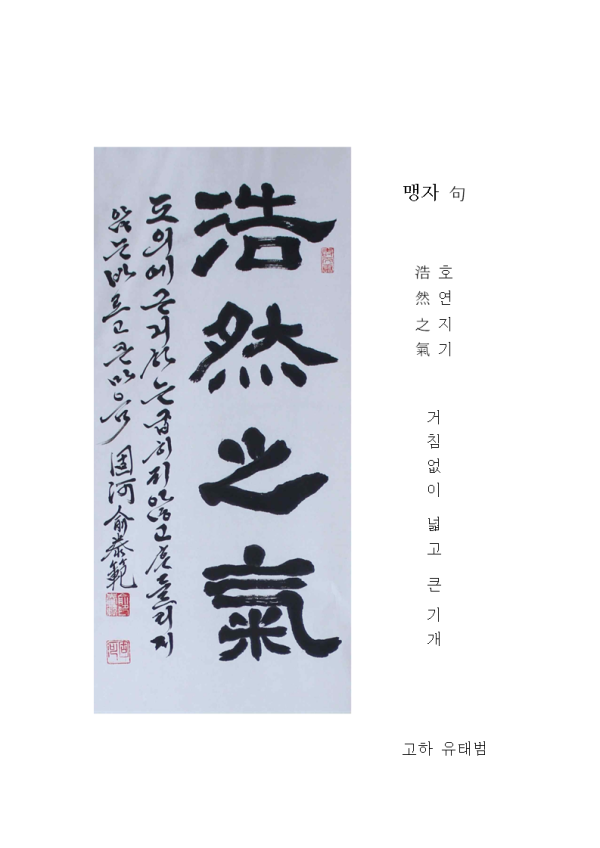 浩然之氣
도의에 근거하는 굽히지 않고 흔들리지
않는 바르고 큰 마음 固河 俞泰範
맹자 句
浩然之氣
호연지기
거침없이 넓고 큰 기개
고하 유태범